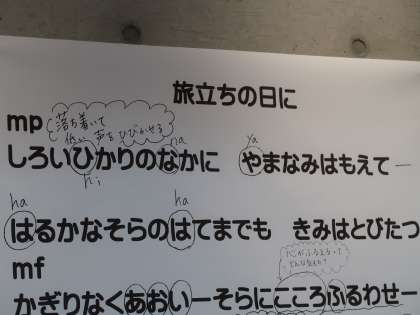 旅立ちの日に
mp
落ち着いて
低い声をひびかせる
na
ya
しろいひかりのなかに　やまなみはもえて―
hi
ha
ha
はるかなそらのはてまでも　きみはとびたつ
mf
心がふるえるって
どんな気もち?
かぎりなくあおいーそらにこころふるわせー